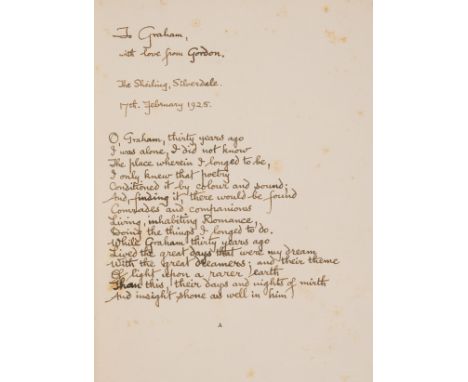 To Graham,
with love from Gordon.
The Sheiling, Silverdale.
17th. February 1925.
O, Graham, thirty years ago
I was alone, I did not know
The place wherein I longed to be,
I only knew that poetry
Conditioned it by colour and sound;
And finding it, there would be found
Comrades and companions
Living, inhabiting Romance,
Doing the things I longed to do.
While Graham thirty years ago
Lived the great days that were my dream
With the great dreamers; and their theme
Of light upon a rarer earth
Than this, their days and nights of mirth
And insight shone as well in him
A